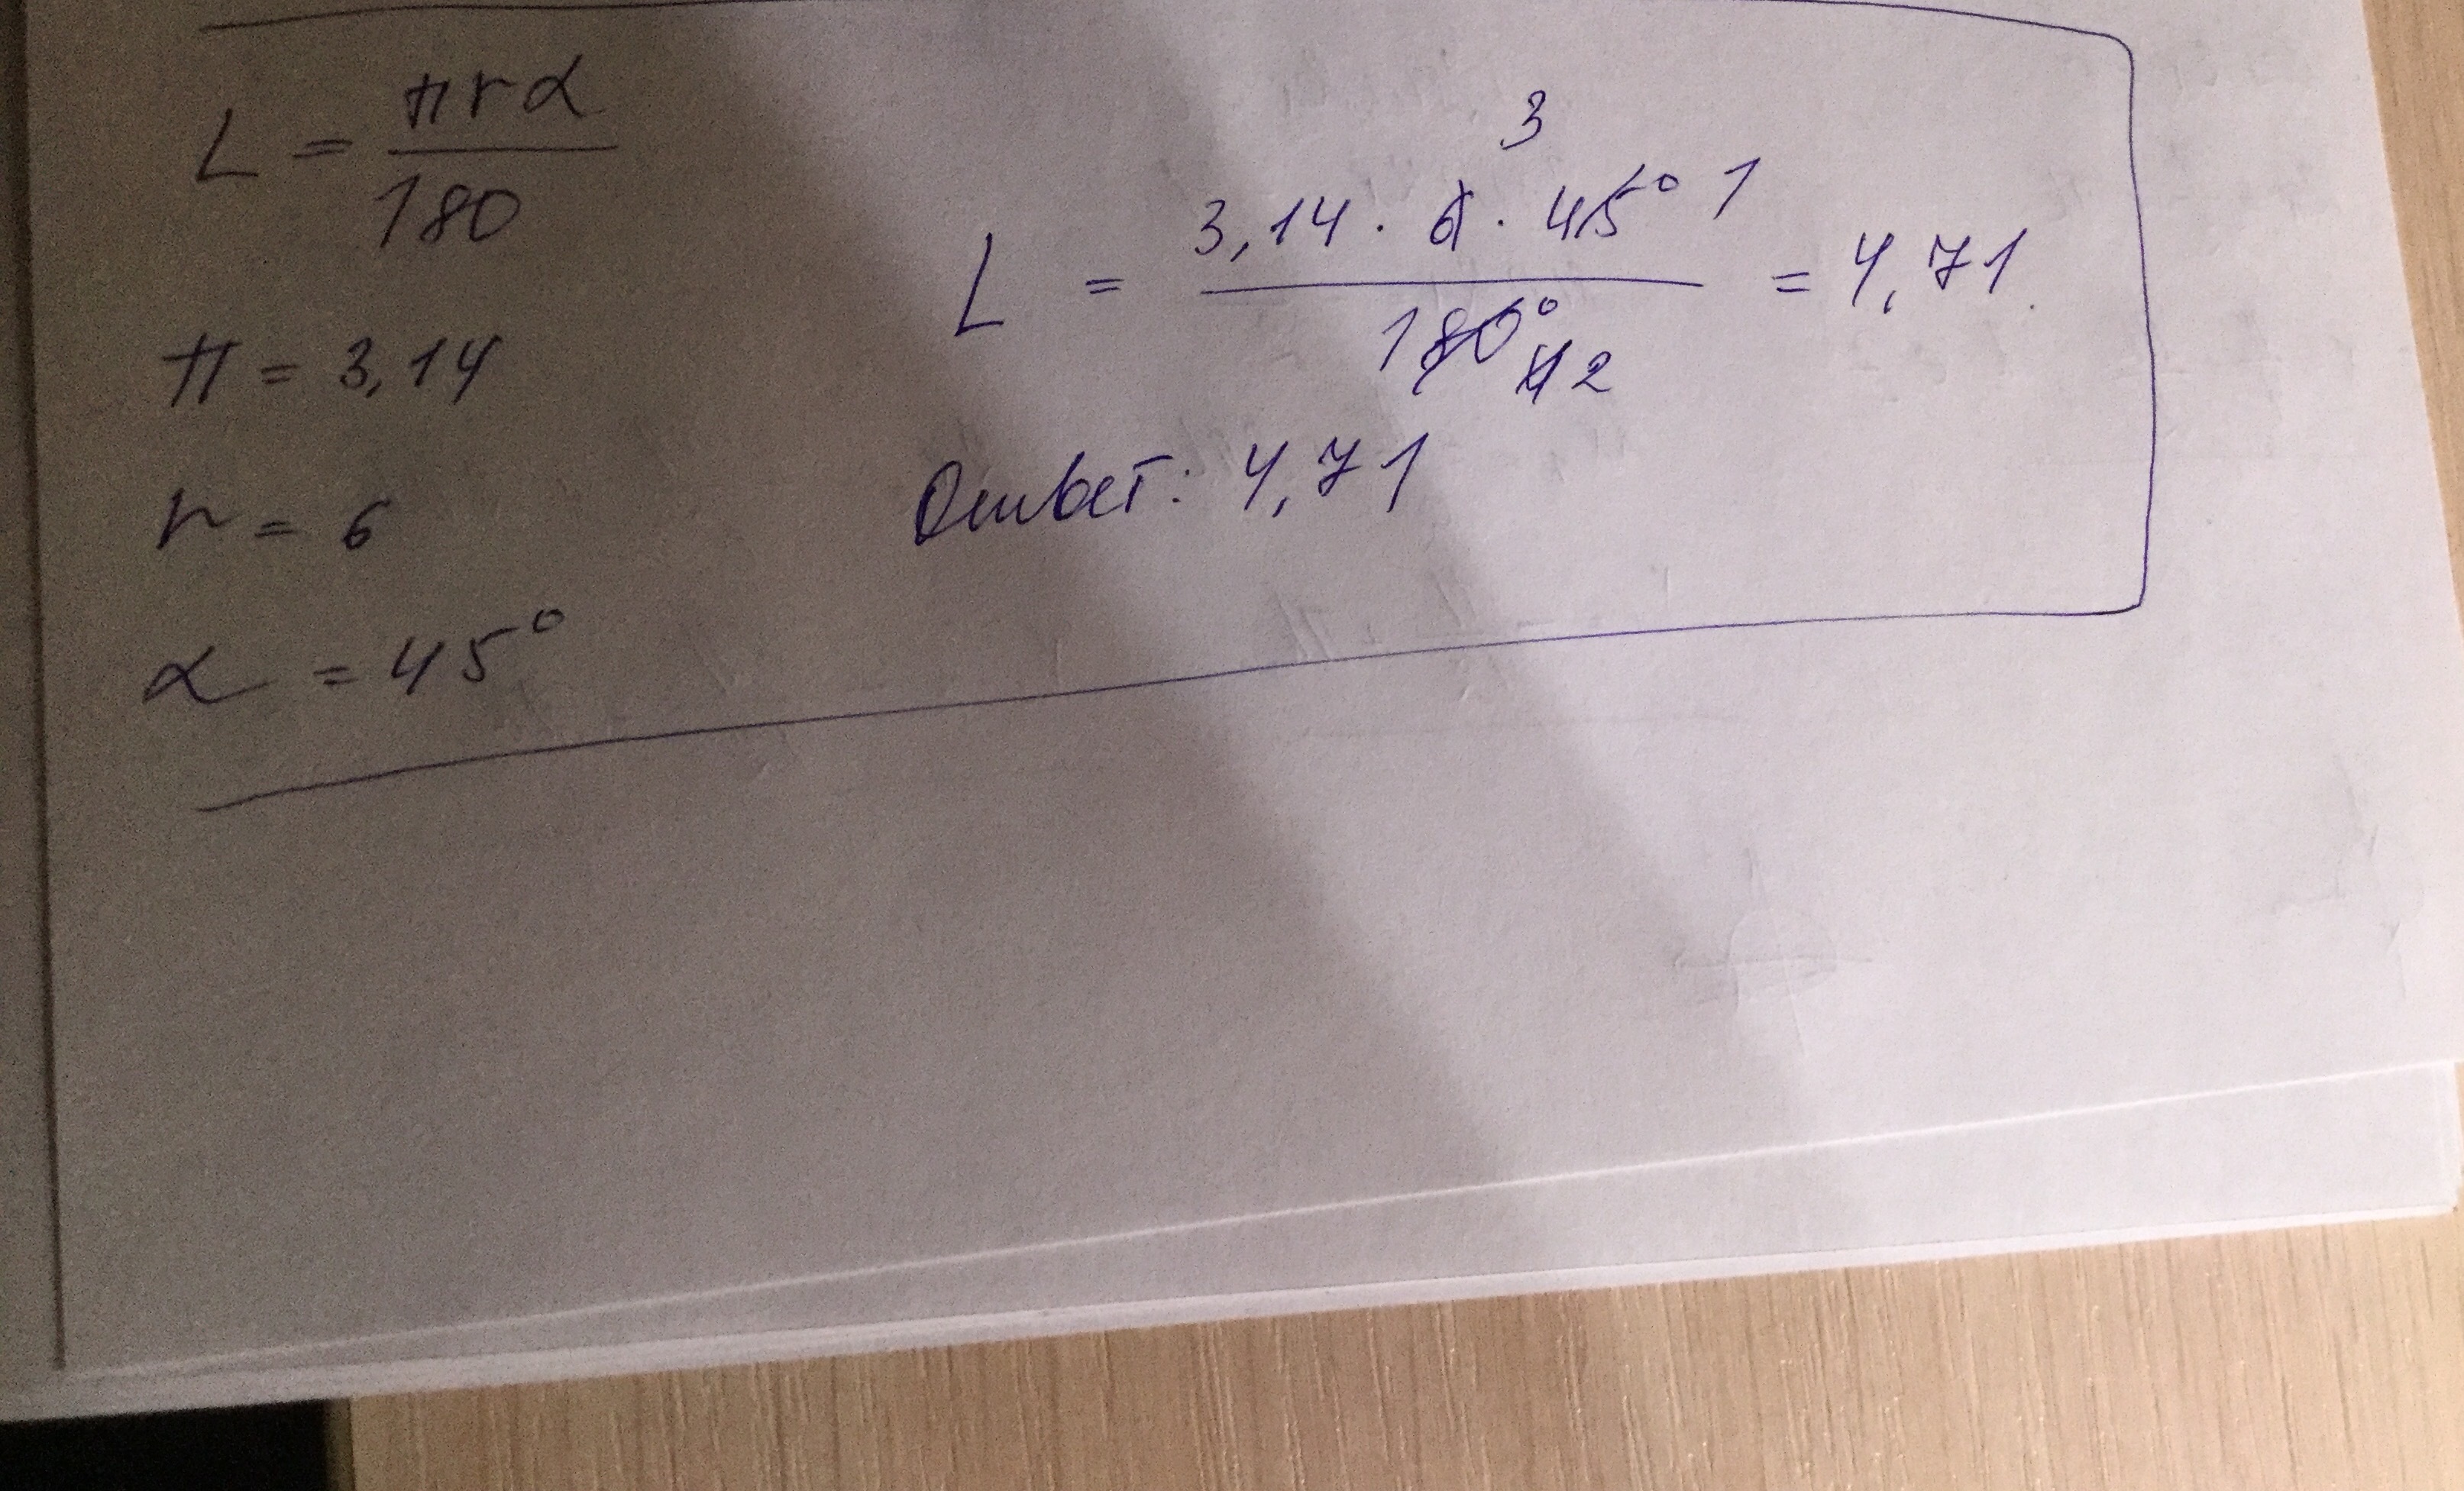 L = πrα / 180
π = 3,14
r = 6
α = 45°
3
L = 3,14 · 6 · 45° 1 / 180° 4 2 = 4,71
Ответ: 4,71